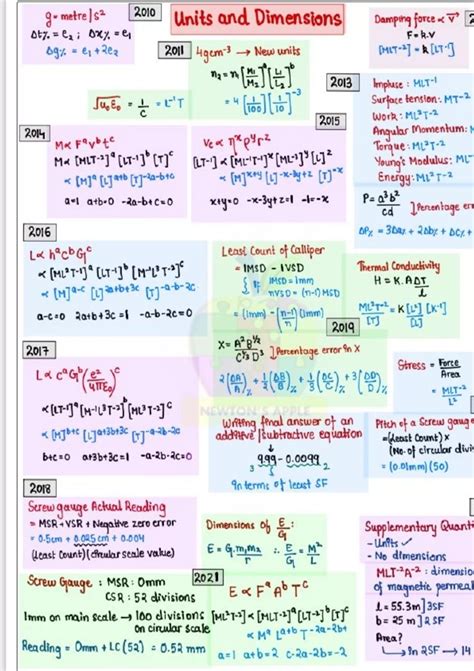 2010
Units and Dimensions
g = metre/s²
Δt% = e₂ ; Δx% = e₁
Δg% = e₁ + 2e₂
2011
4gcm⁻³ → New units
n₂ = n₁[M₁/M₂]ᵃ[L₁/L₂]ᵇ
= 4[1/100][1/10]⁻³
√u₀ε₀ = 1/C = L⁻¹T
Damping force ∝ V
F = k.v
[MLT⁻²] = k[LT⁻¹]
2013
Impulse : MLT⁻¹
Surface tension : MT⁻²
Work : ML²T⁻²
Angular Momentum :
Torque : ML²T⁻²
Young's Modulus : ML⁻
Energy : ML²T⁻²
P = a³b²/cd
] Percentage err
ΔP% = 3Δa% + 2Δb% + ΔC% +
2014
M ∝ Fᵃ vᵇ tᶜ
M ∝ [MLT⁻²]ᵃ [LT⁻¹]ᵇ [T]ᶜ
∝ [M]ᵃ [L]ᵃ⁺ᵇ [T]⁻²ᵃ⁻ᵇ⁺ᶜ
a=1 a+b=0 -2a-b+c=0
2015
Vc ∝ ηˣ ρʸ rᶻ
[LT⁻¹] ∝ [ML⁻¹T⁻¹]ˣ [ML⁻³]ʸ [L]ᶻ
∝ [M]ˣ⁺ʸ [L]⁻ˣ⁻³ʸ⁺ᶻ [T]⁻ˣ
x+y=0 -x-3y+z=1 -1=-x
2016
L ∝ hᵃ Cᵇ Gᶜ
∝ [ML²T⁻¹]ᵃ [LT⁻¹]ᵇ [M⁻¹L³T⁻²]ᶜ
∝ [M]ᵃ⁻ᶜ [L]²ᵃ⁺ᵇ⁺³ᶜ [T]⁻ᵃ⁻ᵇ⁻²ᶜ
a-c=0 2a+b+3c=1 -a-b-2c=0
Least Count of Calliper
= 1MSD - 1VSD
{ if 1MSD = 1mm
nVSD = (n-1) MSD
= (1mm) - (n-1/n)(1mm)
Thermal Conductivity
H = K.A ΔT/l
ML²T⁻²/T = K[L²/L][K⁻¹]
2019
X = A²B^½/C^⅓D³
] Percentage error in X
2(ΔA/A)% + ½(ΔB/B)% + ⅓(ΔC/C)% + 3(ΔD/D)%
2017
L ∝ Cᵃ Gᵇ (e²/4πε₀)ᶜ
∝ [LT⁻¹]ᵃ [M⁻¹L³T⁻²]ᵇ [ML³T⁻²]ᶜ
∝ [M]⁻ᵇ⁺ᶜ [L]ᵃ⁺³ᵇ⁺³ᶜ [T]⁻ᵃ⁻²ᵇ⁻²ᶜ
b+c=0 a+3b+3c=1 -a-2b-2c=0
NEWTON'S APPLE
Stress = Force/Area
= MLT⁻²/L²
Writing final answer of an
additive/subtractive equation
9.99 - 0.0099
In terms of least SF
Pitch of a Screw gauge
= (Least Count) x
(No. of circular divi
= (0.01mm)(50)
2018
Screw gauge Actual Reading
= MSR + VSR + Negative zero error
= 0.5cm + 0.025cm + 0.004
(Least Count)(circular scale value)
Dimensions of E/G
E = G.m₁m₂/r ∴ E/G = M²/L
Supplementary Quanti
- Units ✓
- No dimensions
MLT⁻²A⁻² : dimension
of magnetic permea
l = 55.3m ] 3SF
b = 25 m ] 2SF
→ In 2SF → 14
Screw Gauge : MSR : 0mm
CSR : 52 divisions
1mm on main scale → 100 divisions
on circular scale
Reading = 0mm + LC(52) = 0.52 mm
2021
E ∝ Fᵃ Aᵇ Tᶜ
[ML²T⁻²] ∝ [MLT⁻²]ᵃ [LT⁻²]ᵇ [T]ᶜ
∝ Mᵃ Lᵃ⁺ᵇ T⁻²ᵃ⁻²ᵇ⁺ᶜ
a=1 a+b=2 c-2a-2b=-2